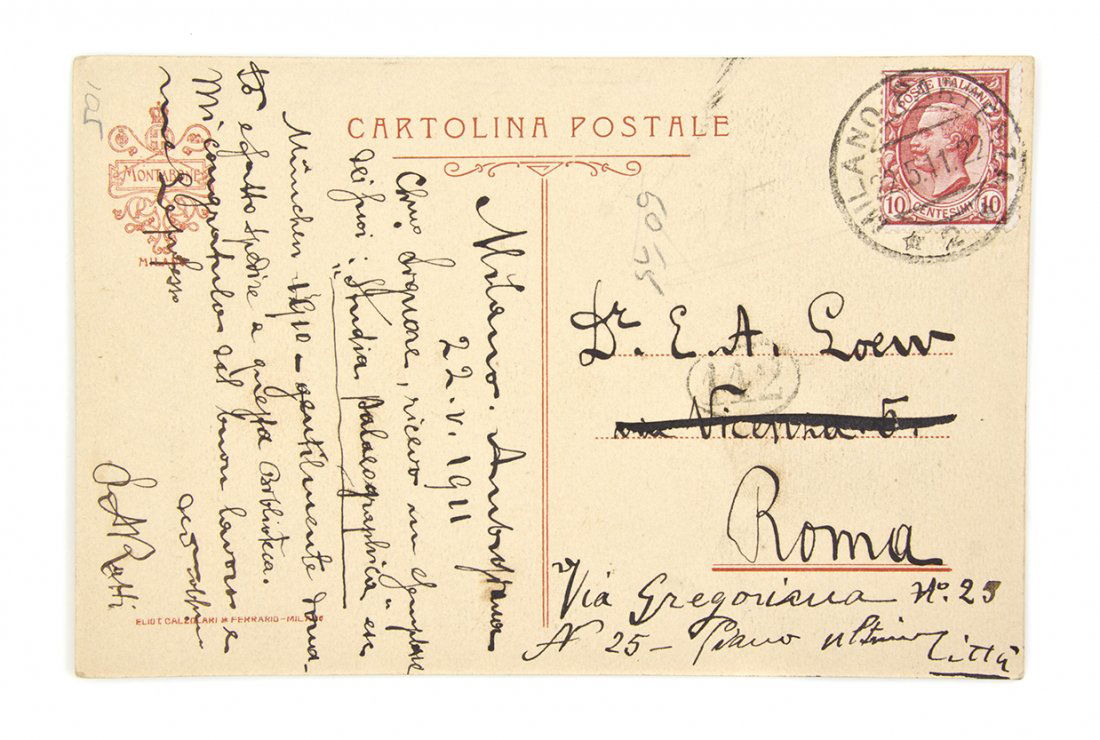 CARTOLINA POSTALE
MONTABONE
MILANO
Milano. Ambrosiana
22. V. 1911
Chmo Signore, ricevo un esemplare
dei suoi: "Studia palaeographica" etc
München 1910 - gentilmente dona-
to e fatto spedire a questa Biblioteca.
Mi congratulo del buon lavoro e
S. A. Ratti
ELIOT. CALZOLARI & FERRARIO - MILANO
POSTE ITALIANE
10 CENTESIMI 10
MILANO
22.5.11
Dr. E. A. Loew
via Vicenza 5.
Roma
Via Gregoriana No. 25
N 25 - Piano ultimo
Città
105